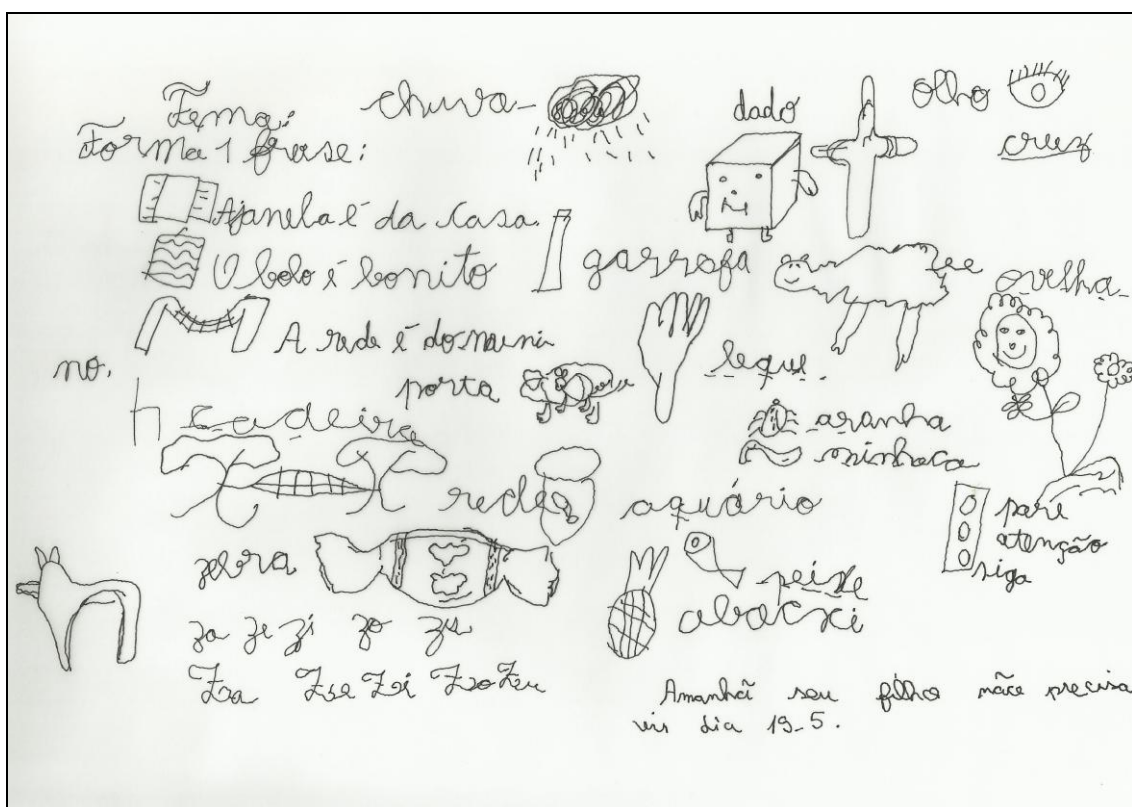 Tema:
chuva-
dado
olho
cruz
Forma 1 frase:
A janela é da casa.
O bolo é bonito
garrafa
ovelha
A rede é do meni
no.
leque.
porta
cadeira
aranha
minhoca
rede
aquário
pare
atenção
siga
zebra
peixe
abacxi
za ze zi zo zu
Za Ze Zi Zo Zu
Amanhã seu filho não precisa
vir dia 19-5.